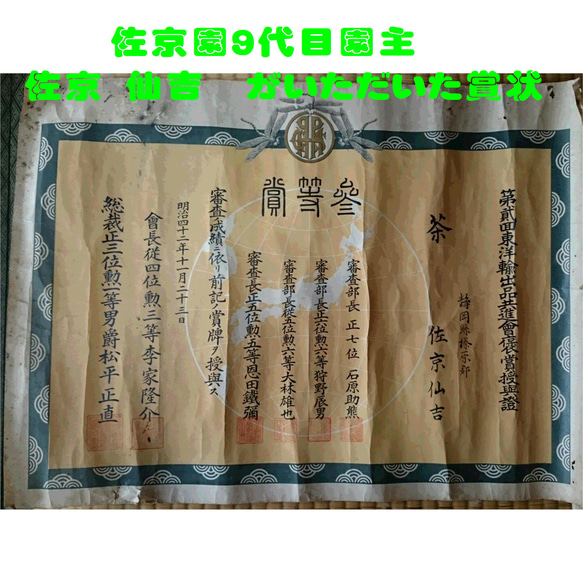 佐京園9代目園主
佐京 仙吉 がいただいた賞状
第貳回東洋輸出品共進會褒賞授與證
静岡縣榛原郡
茶 佐京仙吉
賞等參
審査部長 正七位 石原助熊
審査部長正六位勲六等狩野辰男
審査部長從五位勲六等大林雄也
審査長正五位勲五等恩田鐵彌
審査成績ニ依リ前記ノ賞牌ヲ授與ス
明治四十二年十一月二十三日
會長從四位勲三等李家隆介
総裁正三位勲一等男爵松平正直